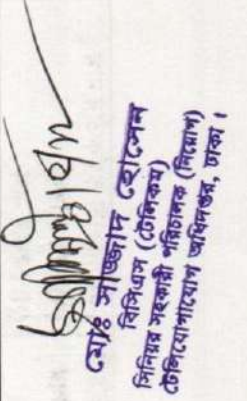 মোঃ সাজ্জাদ হোসেন
বিসিএস (টেলিকম)
সিনিয়র সহকারী পরিচালক (নিয়োগ)
টেলিযোগাযোগ অধিদপ্তর, ঢাকা।